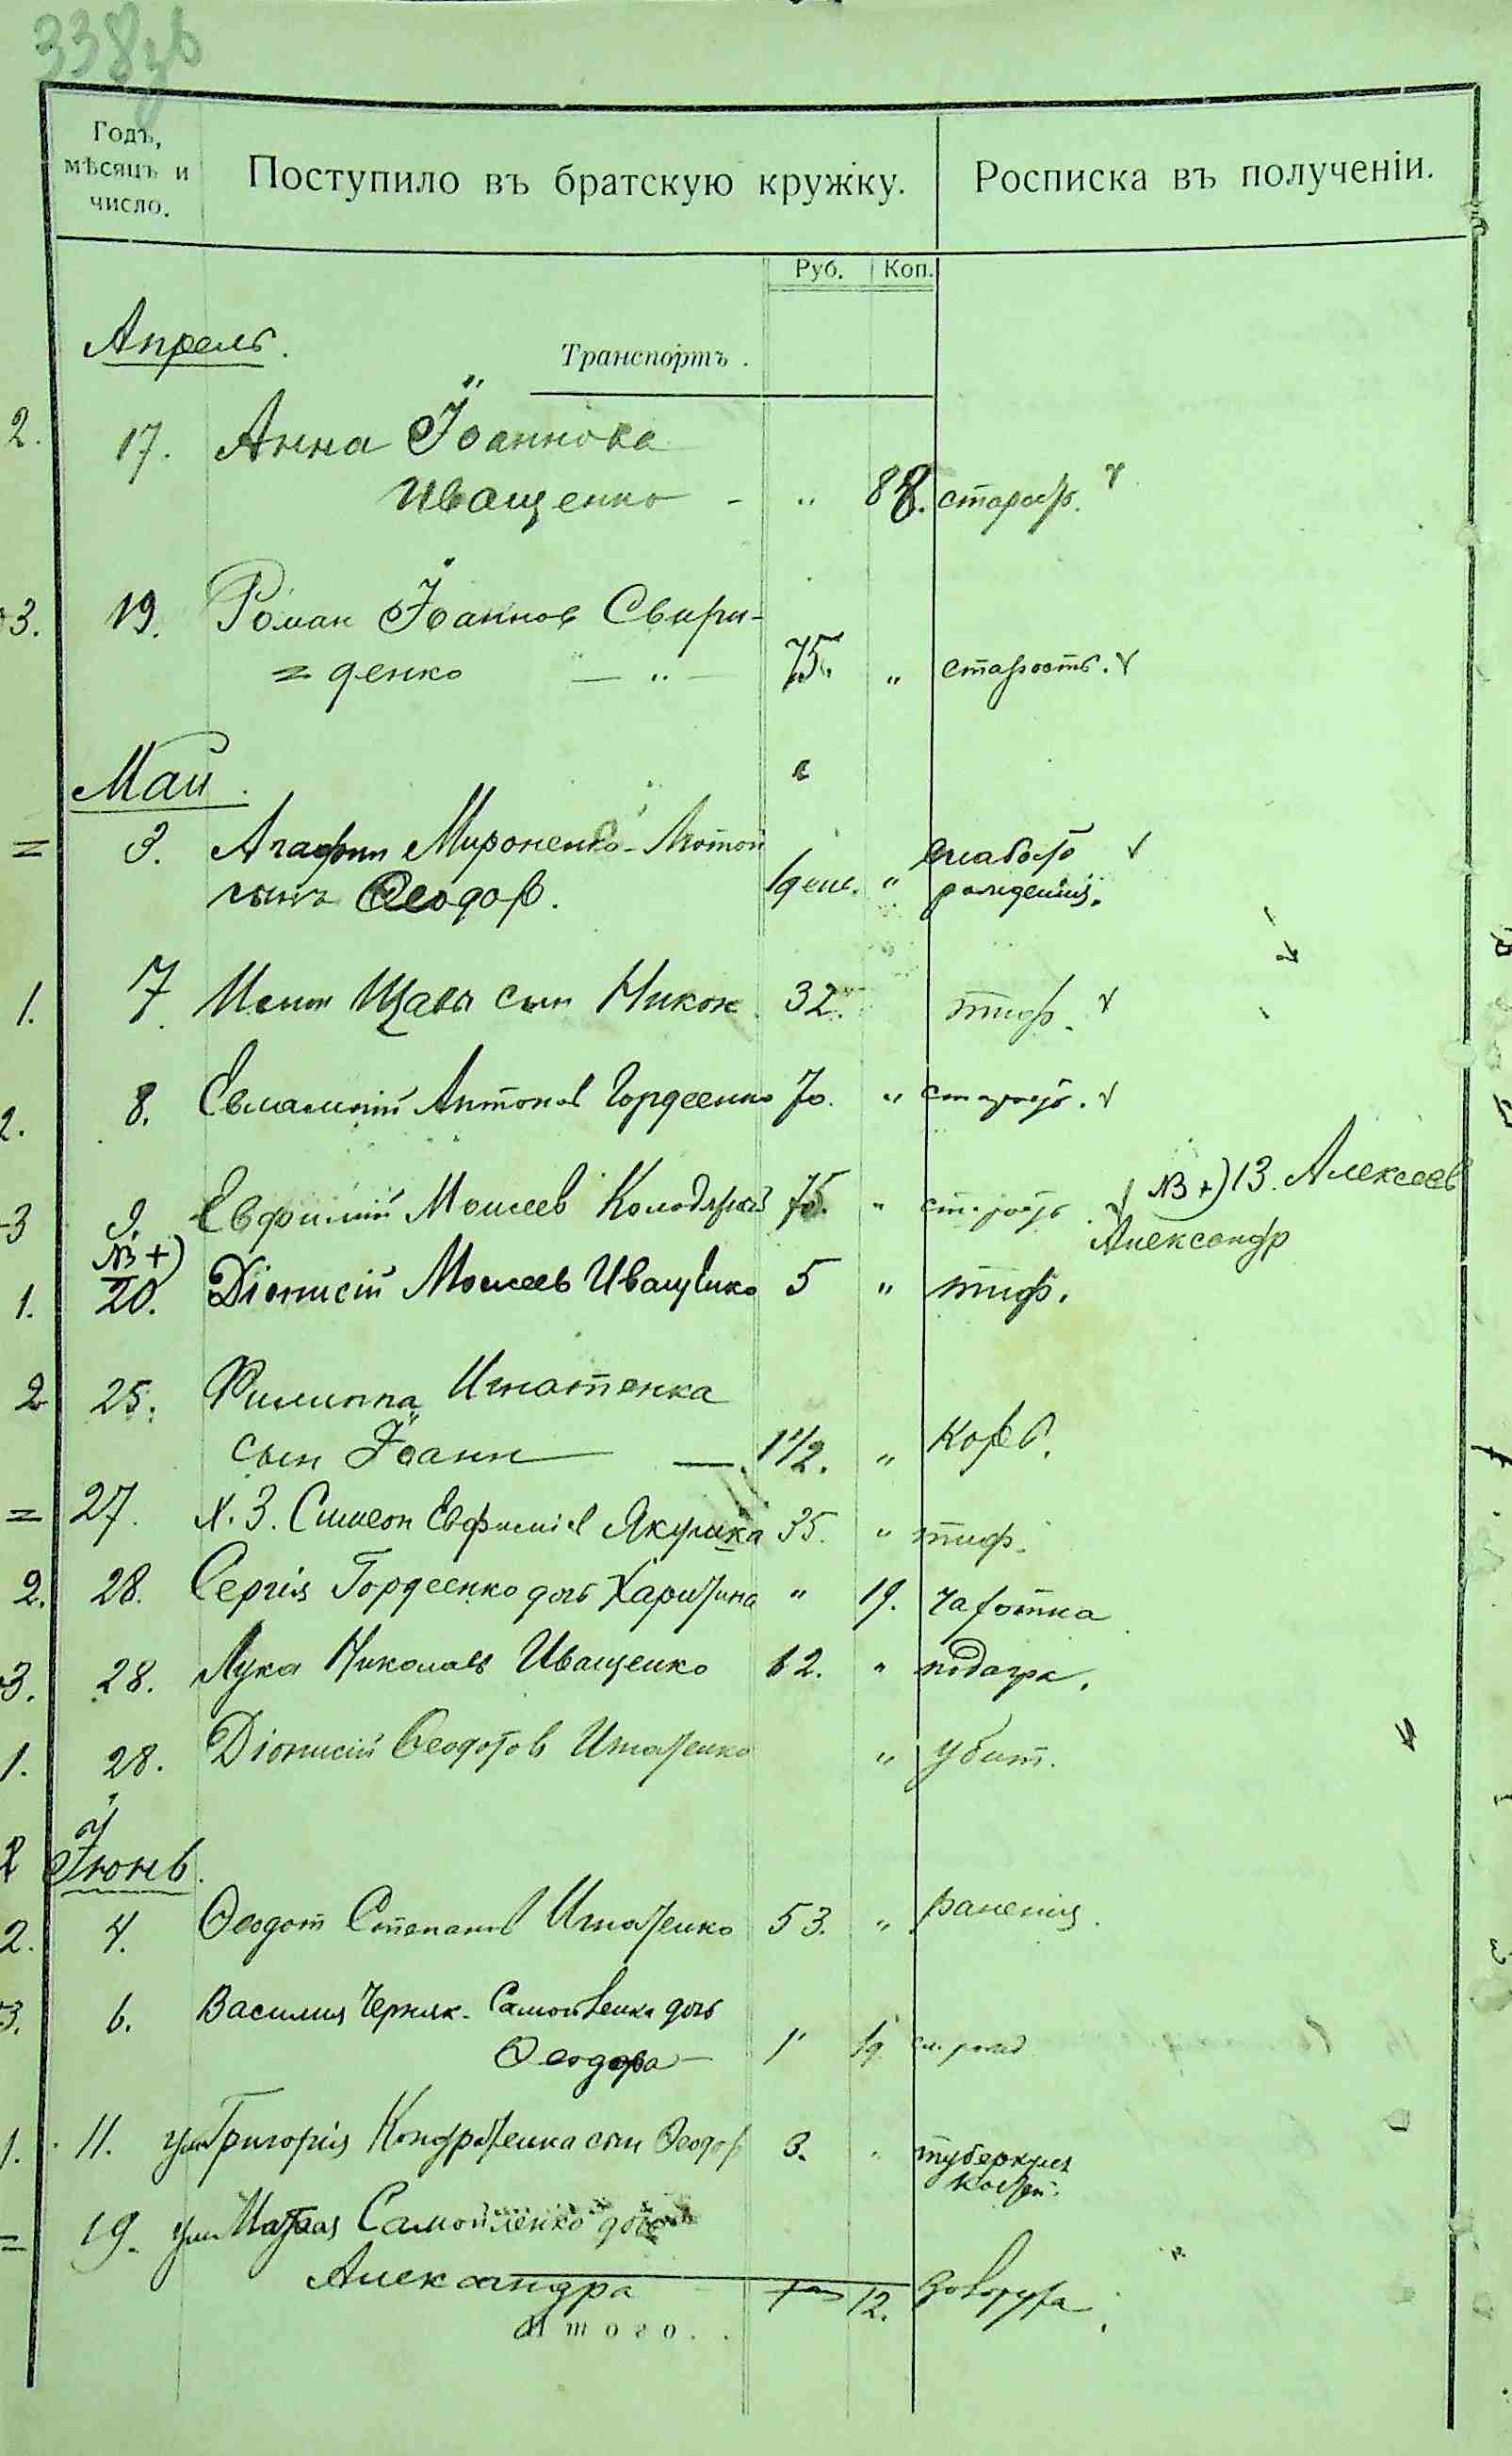 338 зв
Годъ,
мѣсяцъ и
число.
Поступило въ братскую кружку.
Росписка въ полученіи.
Руб. Коп.
Апрель.
Транспортъ.
2. 17. Анна Іоаннова
Иващенко - " 88. старость
3. 19. Роман Іоаннов Свири-
= денко — " — 75. " старость.
Май.
= 3. Агафии Мироненко-Лютой слабость
сынъ Феодор. 1 ден. " рождения.
1. 7. Щава сын Никон 32. тиф.
2. 8. Евлампий Антонов Гордеенко 70. " старость.
3 9. Евфимий Моисеев Колодяжный 75. " старость
NB +) 13. Алексеев
Александр
NB +)
1. 20. Діонисій Моисеев Иващенко 5 " тиф.
2 25. Филиппа Игнатенка
сын Іоанн — 1 1/2. " корь.
= 27. Х. З. Симеон Евфиміев Якушка 35. " тиф.
2. 28. Сергія Гордеенко дочь Харитина " 19. чахотка
3. 28. Лука Николаев Иващенко 62. " подагра.
1. 28. Діонисій Феодотов Игнатенко " убит.
Іюнь.
2. 4. Феодот Степанов Игнатенко 53. " ранения.
3. 6. Василия Черняк-Самойленка дочь
Феодора — 1 сл. рожд
1. 11. Григорія Кондратенка сын Феодор 3. " туберкулез
костей.
= 19. Самойленко дочь
Александра 12.
Итого..